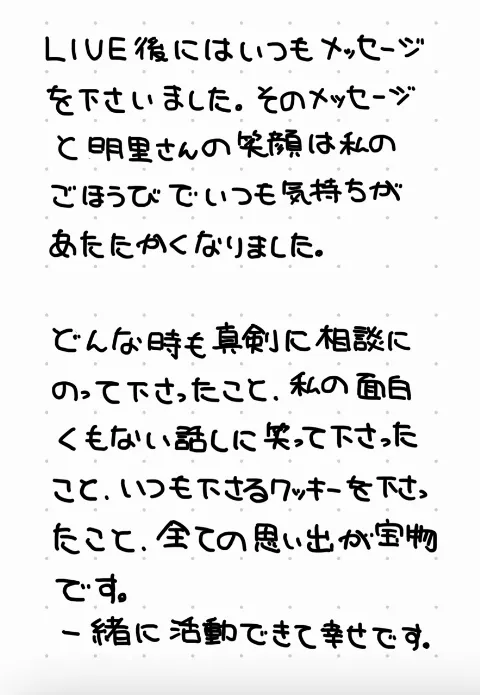 LIVE後にはいつもメッセージ
を下さいました。そのメッセージ
と明里さんの笑顔は私の
ごほうびでいつも気持ちが
あたたかくなりました。
どんな時も真剣に相談に
のって下さったこと、私の面白
くもない話しに笑って下さった
こと、いつも下さるクッキーを下さっ
たこと、全ての思い出が宝物
です。
一緒に活動できて幸せです。